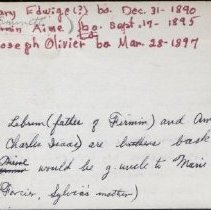 ary Edwige (?) bo. Dec. 31-1890
min Aime) bo. Sept. 17- 1895
to
oseph Olivier bo Mar. 28-1897
Lebrun (father of Firmin) and Am
Charlie Isaac) are brothers
would be g. uncle to Marie
Poirier, Sylvia's mother)